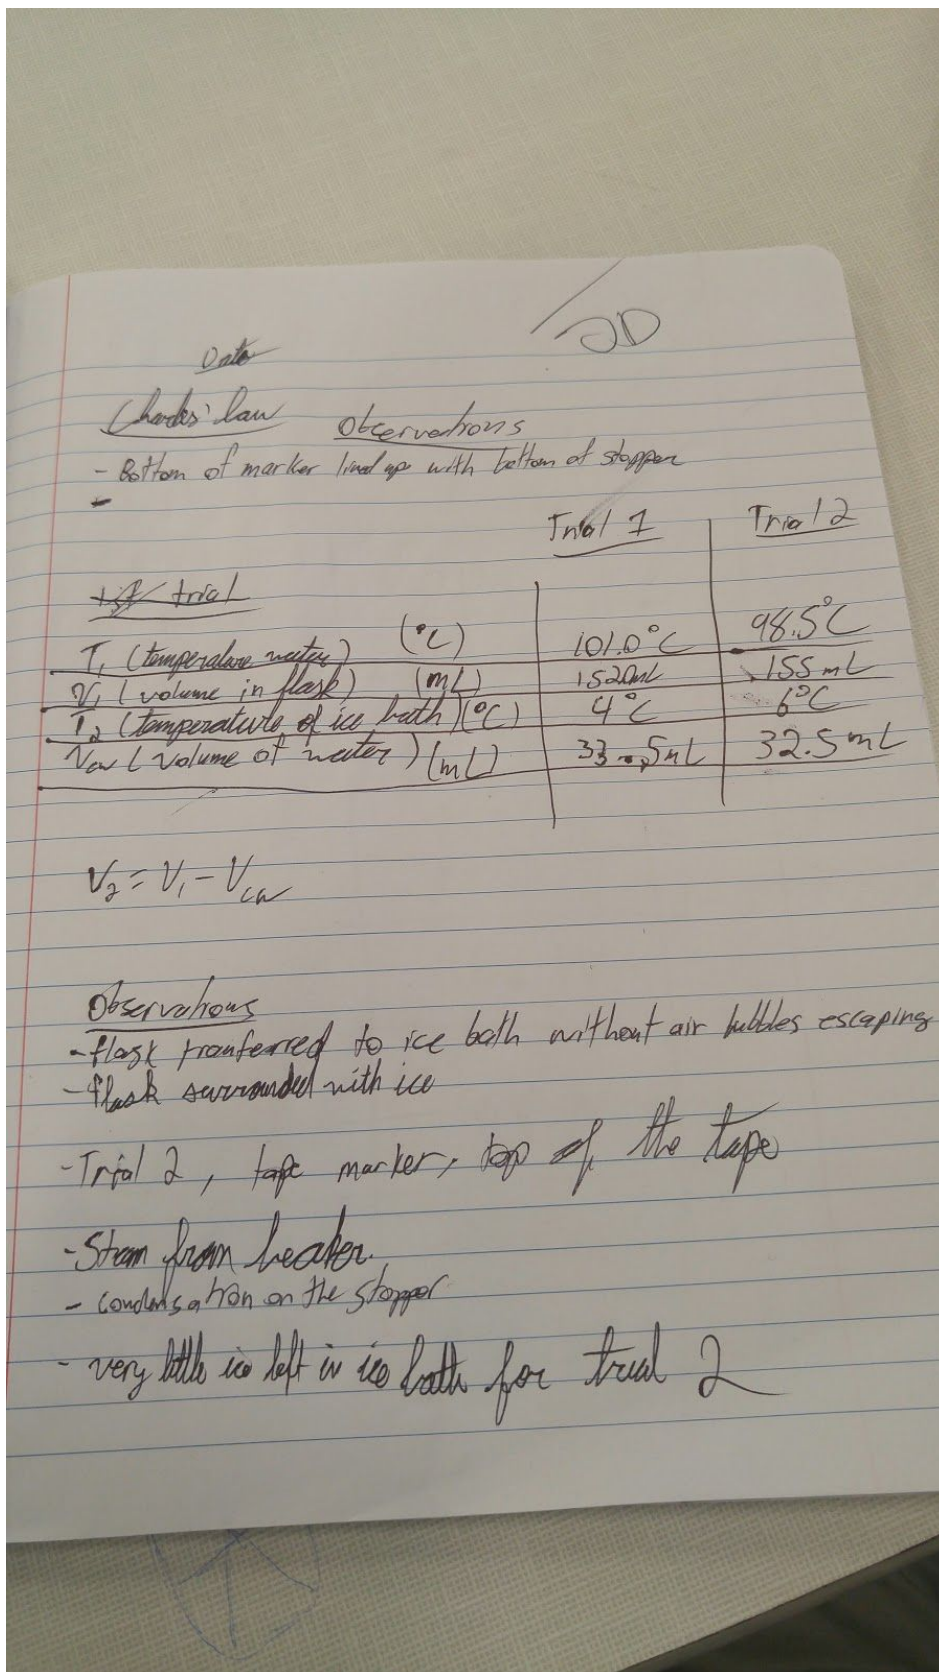 /20
Data
Charles' law
Observations
- Bottom of marker lined up with bottom of stopper
-
Trial 1 Trial 2
1st trial
T₁ (temperature water) (°C) 101.0°C 98.5°C
V₁ (volume in flask) (mL) 152.0mL 155mL
T₂ (temperature of ice bath) (°C) 4°C 6°C
Vcw (volume of water) (mL) 33.5mL 32.5mL
V₂ = V₁ - Vcw
Observations
- flask tranferred to ice bath without air bubbles escaping
- flask surrounded with ice
- Trial 2, tape marker, top of the tape
- Steam from beaker.
- condensation on the stopper
- very little ice left in ice bath for trial 2